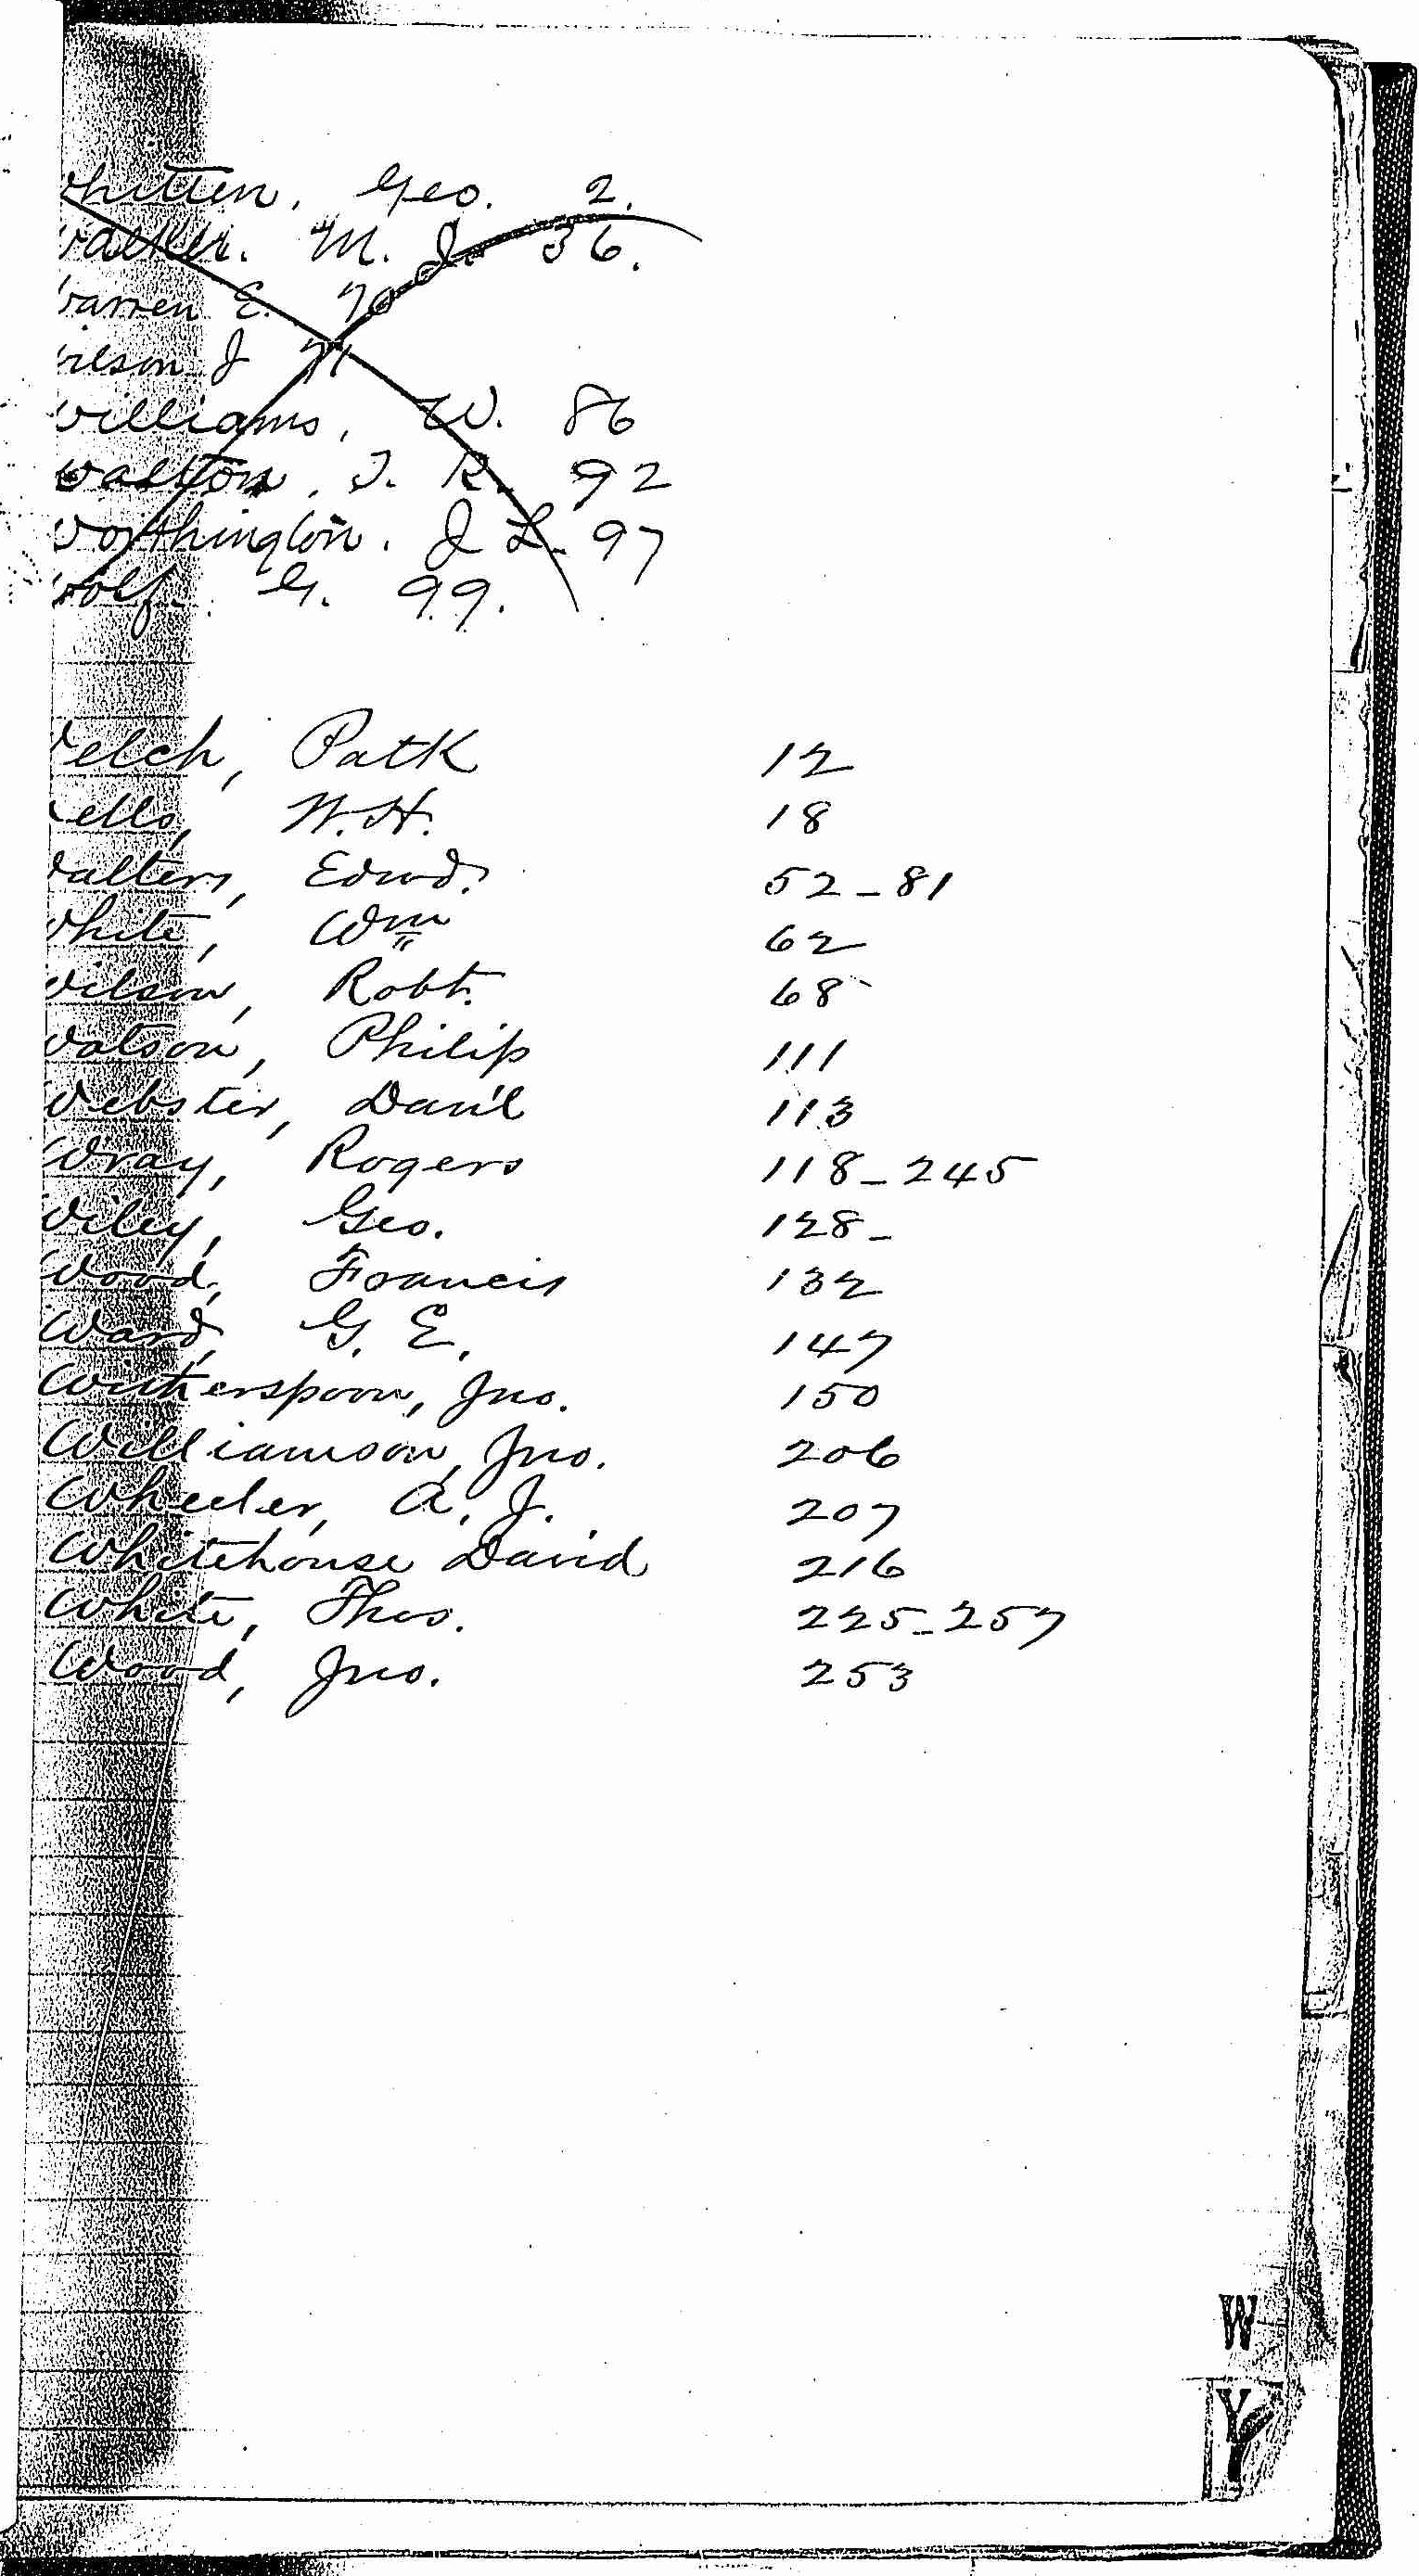 Whitten, Geo. 2.
Walker. M. J. 36.
Warren E. 70
Wilson J 71
Williams, W. 86
Walton, J. R. 92
Worthington. J L. 97
Wolf. G. 99.
Welch, Patk 12
Wells, W. H. 18
Walters, Edwd. 52-81
White, Wm 62
Wilson, Robt. 68
Watson, Philip 111
Webster, Dan'l 113
Wray, Rogers 118-245
Wiley, Geo. 128-
Wood, Francis 132
Ward, G. E. 147
Witherspoon, Jno. 150
Williamson, Jno. 206
Wheeler, A. J. 207
Whitehouse David 216
White, Thos. 225-257
Wood, Jno. 253
W
Y